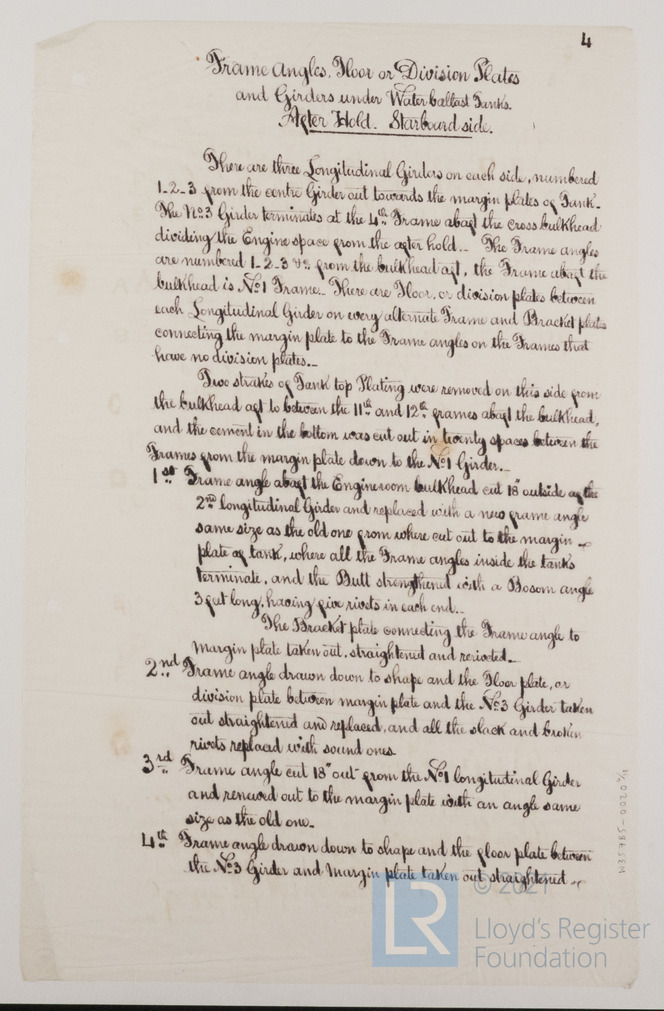 4
Frame Angles, Floor or Division Plates
and Girders under Water ballast Tanks.
After Hold. Starboard side.
There are three Longitudinal Girders on each side, numbered
1-2-3 from the centre Girder out towards the margin plates of Tank.
The No3 Girder terminates at the 4th Frame abaft the cross bulkhead
dividing the Engine space from the after hold.. The Frame angles
are numbered 1-2-3 &c from the bulkhead aft, the Frame abaft the
bulkhead is No1 Frame.. There are Floor, or division plates between
each Longitudinal Girder on every alternate Frame and Bracket plates
connecting the margin plate to the Frame angles on the Frames that
have no division plates..
Two strakes of Tank top Plating were removed on this side from
the bulkhead aft to between the 11th and 12th frames abaft the bulkhead,
and the cement in the bottom was cut out in twenty spaces between the
Frames from the margin plate down to the No1 Girder..
1st Frame angle abaft the Engineroom bulkhead cut 18" outside of the
2nd longitudinal Girder and replaced with a new frame angle
same size as the old one from where cut out to the margin
plate of tank, where all the Frame angles inside the tanks
terminate, and the Butt strengthened with a Bosom angle
3 feet long, having five rivets in each end..
The Bracket plate connecting the Frame angle to
margin plate taken out, straightened and reriveted..
2nd Frame angle drawn down to shape and the Floor plate, or
division plate between margin plate and the No3 Girder taken
out straightened and replaced, and all the slack and broken
rivets replaced with sound ones.
3rd Frame angle cut 18" out from the No1 longitudinal Girder
and renewed out to the margin plate with an angle same
size as the old one..
4th Frame angle drawn down to shape and the floor plate between
the No3 Girder and Margin plate taken out straightened
© 2021
LR Lloyd's Register
Foundation